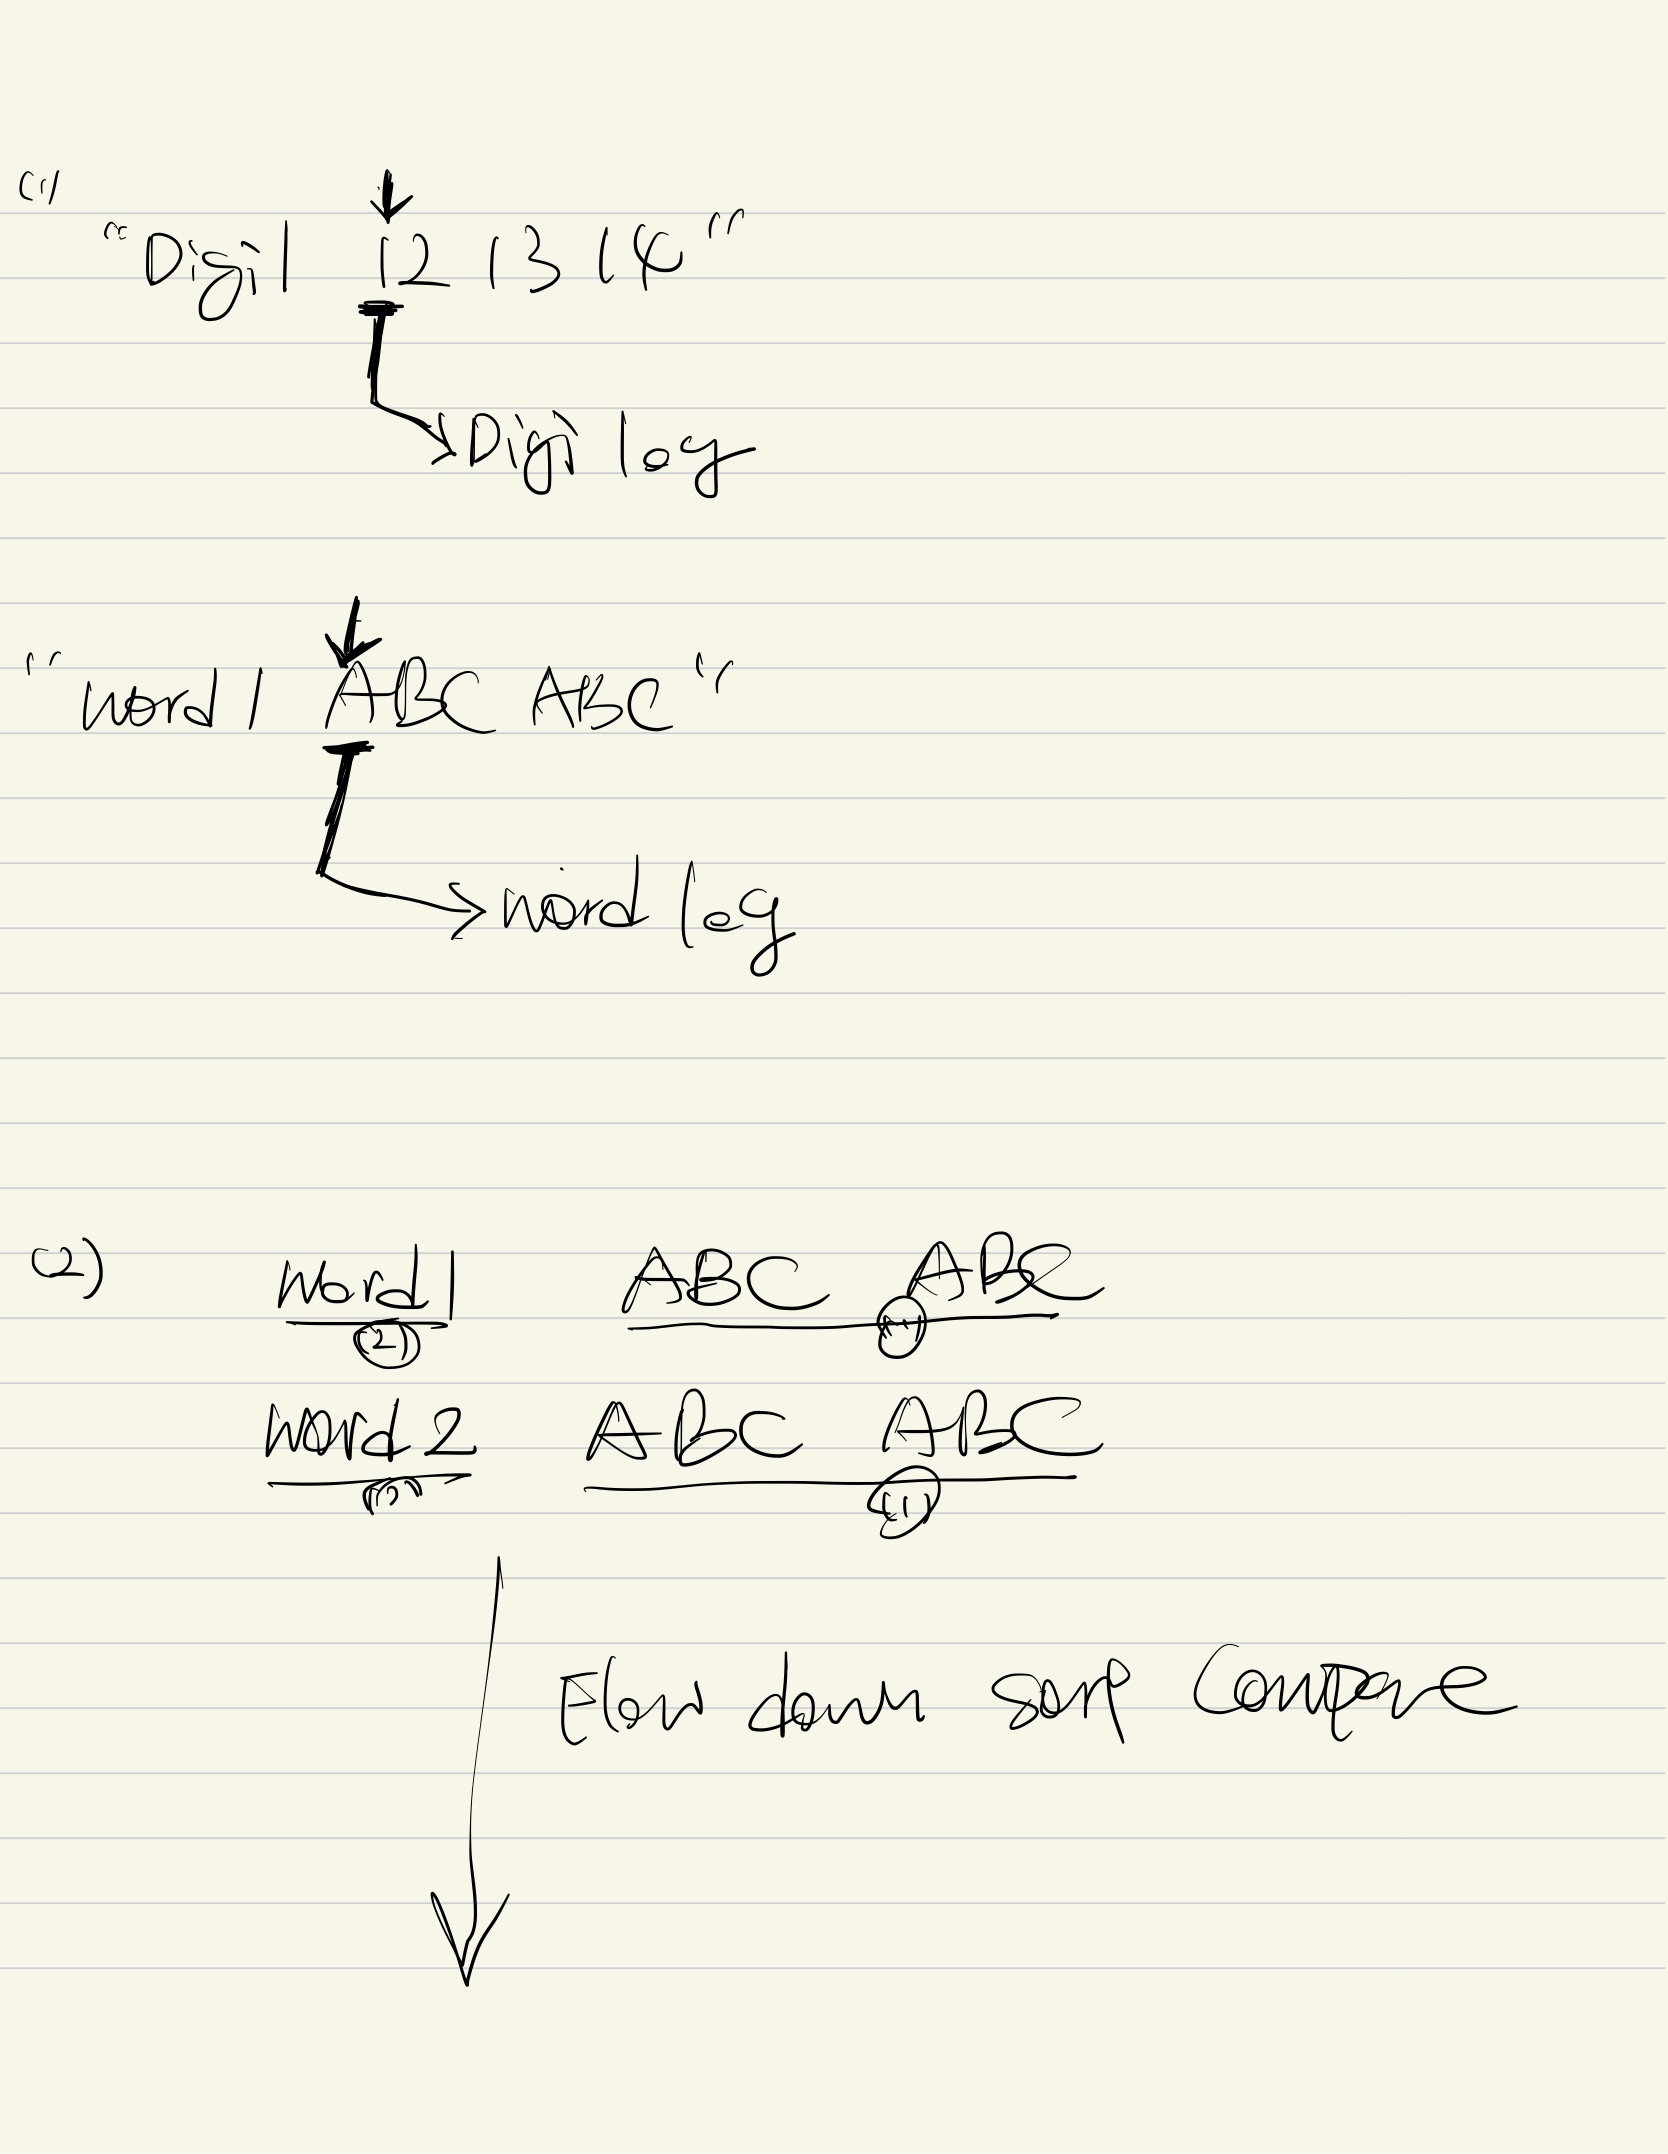 (1)
"Digi1 12 13 14"
Digi log
"word1 ABC ABC"
word log
(2)
Word1 ABC ABC
(2) (1)
word2 ABC ABC
(2) (1)
Flow down compare